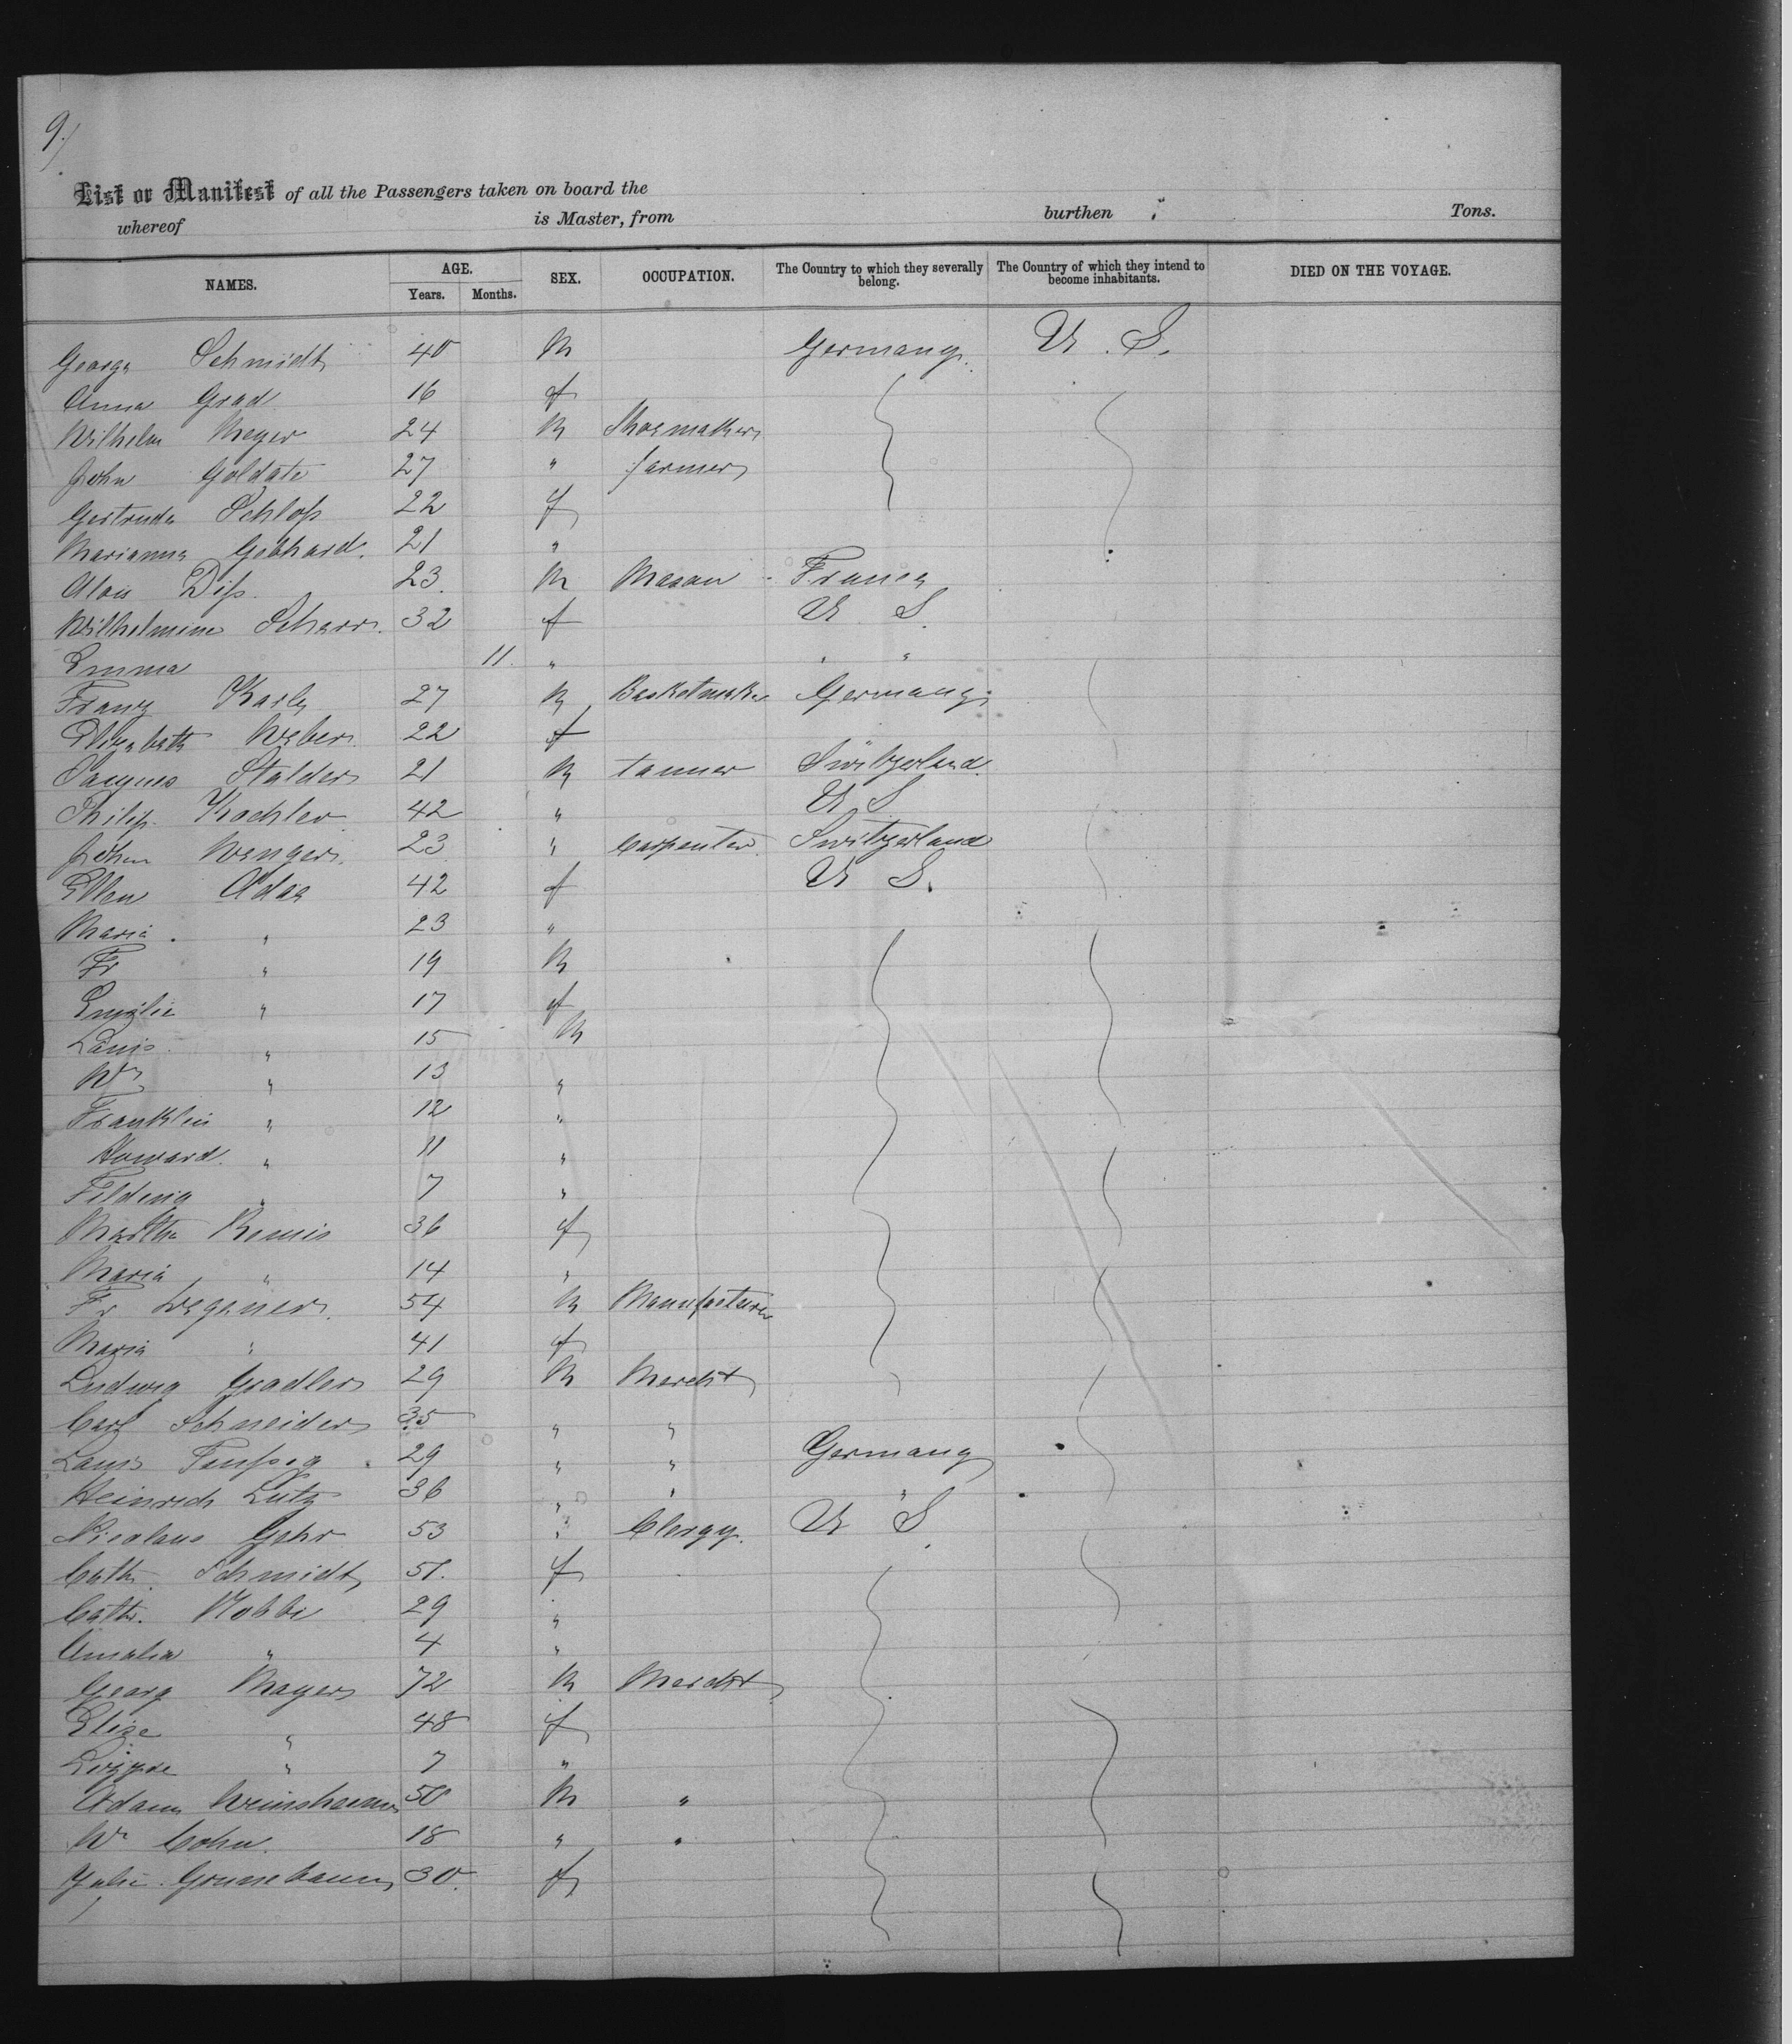 9.)
List or Manifest of all the Passengers taken on board the
whereof is Master, from burthen Tons.
NAMES. AGE. Years. Months. SEX. OCCUPATION. The Country to which they severally belong. The Country of which they intend to become inhabitants. DIED ON THE VOYAGE.
George Schmidt 40 M Germany U. S.
Anna Grad 16 f
Wilhelm Meyer 24 M Shoemaker
John Goldate 27 " farmer
Gertrude Schloß 22 f
Marianna Gebhard. 21 "
Diß. 23. M Mason France
Wilhelmine Scharr. 32 f U S.
Emma 11. " " "
Franz 27 M Basketmaker Germany
Elizabeth Weber 22 f
Jacques Stalder 21 M tanner Switzerland.
Philip. Kochler 42 " U S
John Wenger. 23 " Carpenter. Switzerland
Ellen Adae 42 f U S.
Maria. " 23 "
Fr " 19 M
Emilie " 17 f
Louis. " 15 M
Wm " 13 "
Franklin " 12 "
Howard. " 11 "
" 7 "
Martha Remis 36 f
Maria " 14 "
Fr Wegener. 54 M Manufacturer
Maria " 41 f
Ludwig Gradler 29 M Merch't
Carl Schneider 35 " "
Louis 29 " " Germany
Heinrich Lutz 36 " " "
Nicolaus Gehr 53 " Clergy. U S.
Cath. Schmidt 51. f
Cath. Kobbe 29 "
Amalia " 4 "
Georg Mayer 72 M Merch't
Elise " 48 f
Lizzie " 7 "
Adam 50 M "
Wm Cohn. 18 " "
Julie. Grunebaum 30. f